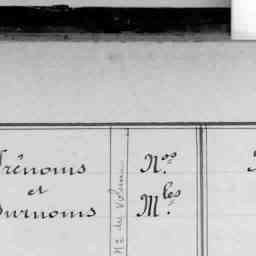 Prénoms
et
Surnoms
Nº du Volume
Nos
Mles